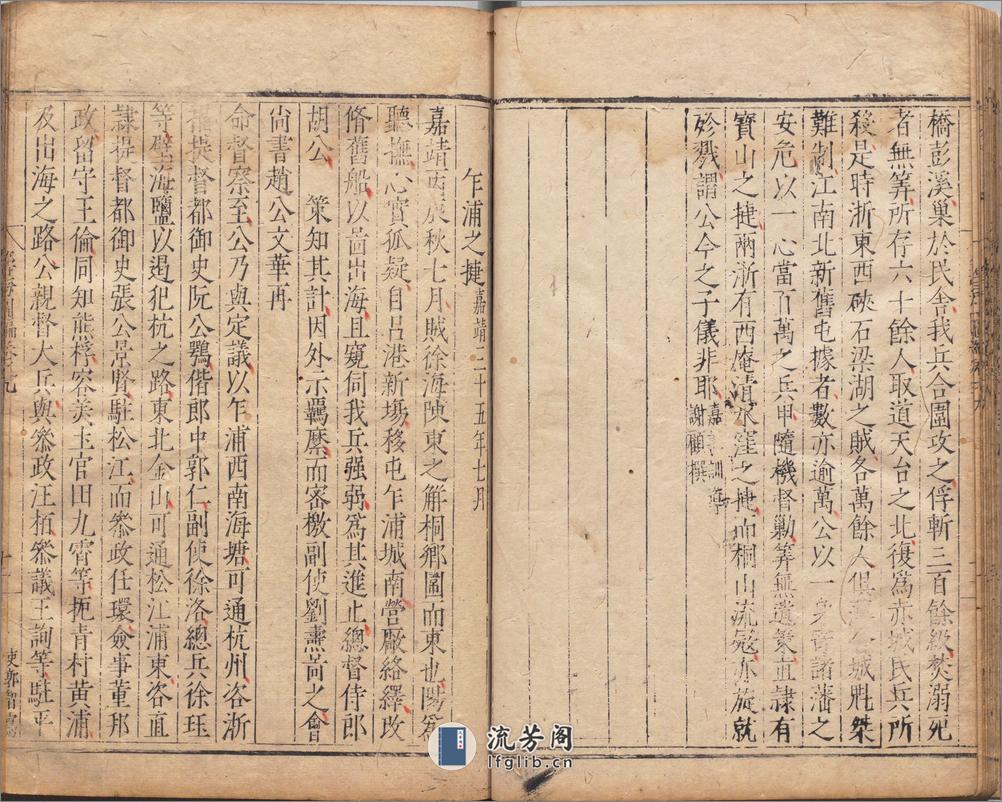 橋彭溪巢於民舍我兵合圍攻之俘斬三百餘級焚溺死
者無筭所存六十餘人取道天台之北復爲赤城民兵所
殺是時浙東西硤石梁湖之賊各萬餘人俱 城尅桀
難制江南北新舊屯據者數亦逾萬公以一身 諸藩之
安危以一心當百萬之兵甲隨機督勦筭無遺策直隷有
寶山之捷兩浙有西庵清水窪之捷而桐山流寇亦旋就
殄戮謂公今之子儀非耶嘉 訓導
謝顧撰
乍浦之捷嘉靖三十五年七月
嘉靖丙辰秋七月賊徐海陳東之解桐鄉圍而東也陽爲
聽撫心實狐疑自呂港新塲移屯乍浦城南營厰絡繹改
脩舊船以啚出海且窺伺我兵强弱爲其進止總督侍郎
胡公 策知其計因外示羈縻而審檄副使劉燾啇之會
尚書趙公文華再
命督察至公乃與定議以乍浦西南海塘可通杭州咨浙
福提督都御史阮公鶚偕郎中郭仁副使徐洛總兵徐珏
等壁海鹽以遏犯杭之路東北金山可通松江浦東咨直
隷提督都御史張公景賢駐松江而叅政任環僉事董邦
政留守王倫同知熊桴容美土官田九霄等扼青村黄浦
及出海之路公親督大兵與叅政汪栢叅議王詢等駐平
卷九
流芳阁
lfglib.cn